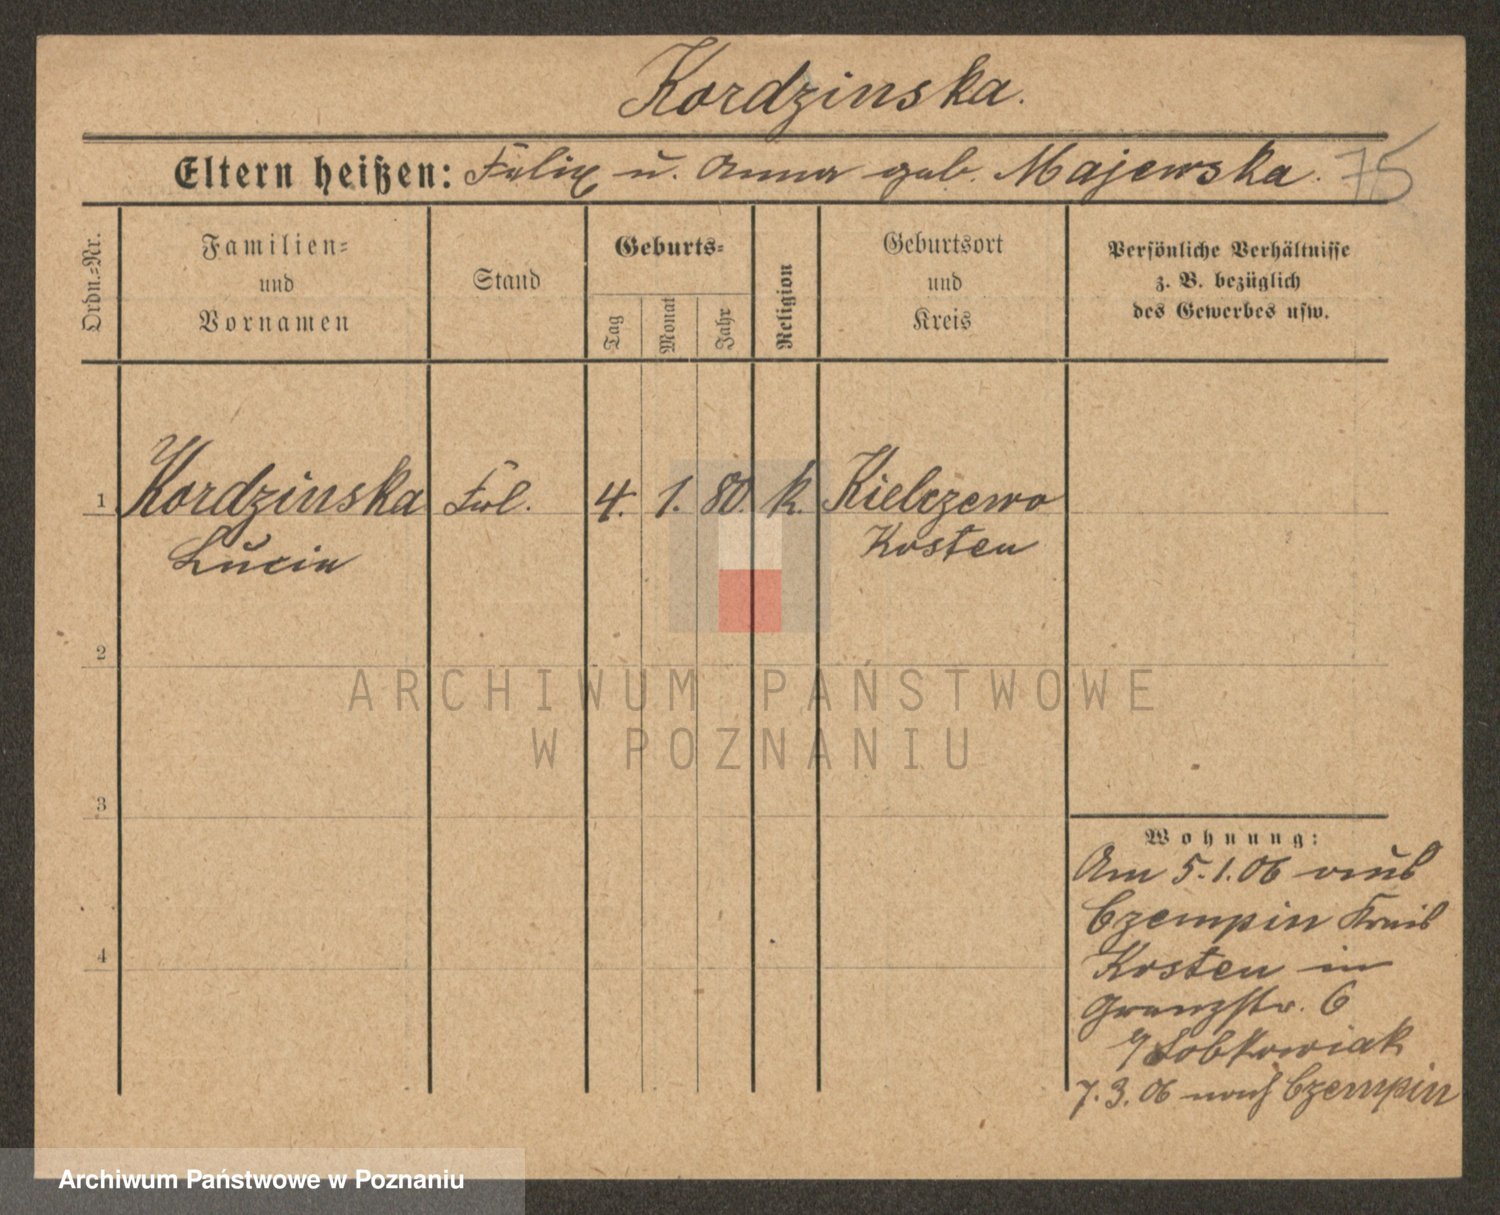 Kordzinska.
Eltern heißen: Felix u. Anna geb. Majewska. 75
Ordn.=Nr.
Familien=
und
Vornamen
Stand
Geburts=
Tag
Monat
Jahr
Religion
Geburtsort
und
Kreis
Persönliche Verhältnisse
z. B. bezüglich
des Gewerbes usw.
1 Kordzinska Frl. 4. 1. 80. k. Kielczewo
Lucia Kosten
2
ARCHIWUM PAŃSTWOWE
W POZNANIU
3
Wohnung:
Am 5.1.06 aus
Czempin Kreis
Kosten in
Grenzstr. 6
Sobkowiak
4
7.3.06 nach Czempin
Archiwum Państwowe w Poznaniu